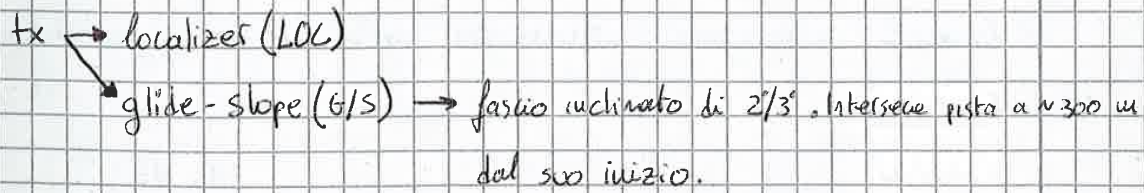 tx → localizer (LOC)
glide-slope (G/S) → fascio inclinato di 2°/3°. Interseca pista a ~ 300 m
dal suo inizio.